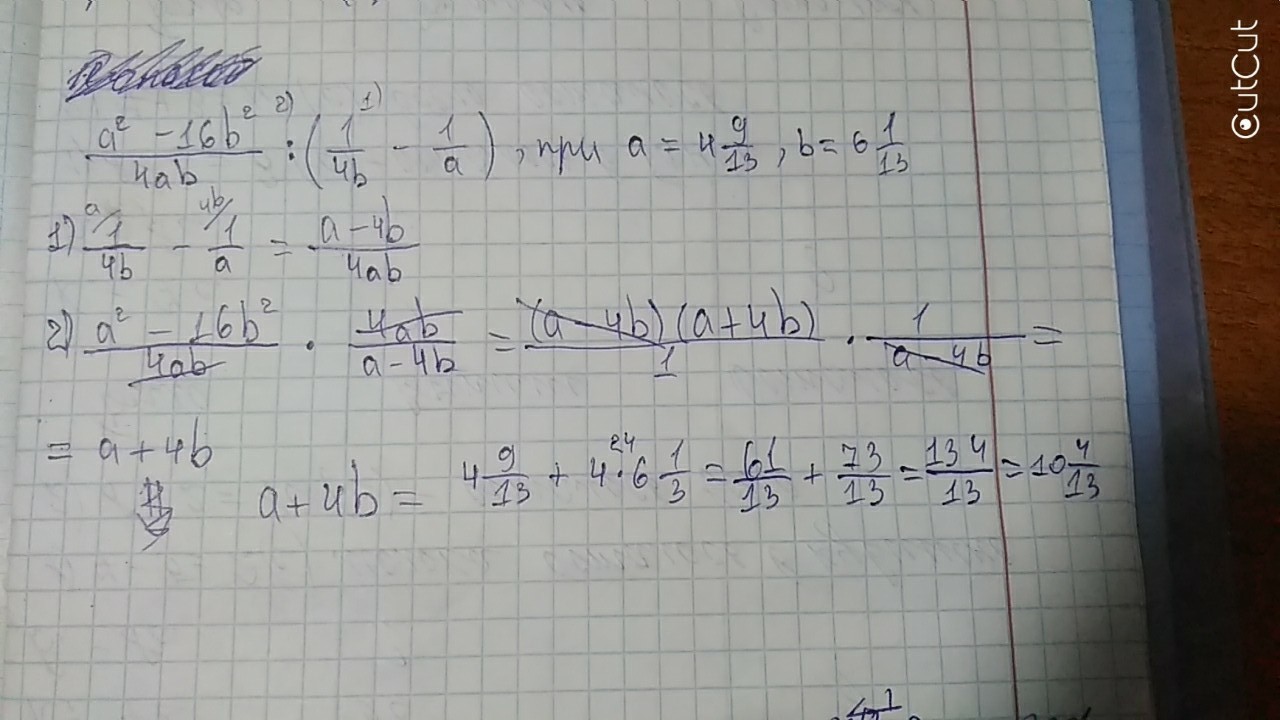 a² - 16b² / 4ab 2) : (1/4b 1) - 1/a), при a = 4 9/13, b = 6 1/13
1) a/ 1/4b - 4b/ 1/a = a - 4b / 4ab
2) a² - 16b² / 4ab · 4ab / a - 4b = (a - 4b)(a + 4b) / 1 · 1 / a - 4b =
= a + 4b
a + 4b = 4 9/13 + 4 · 6 1/3 24 = 61/13 + 73/13 = 134/13 = 10 4/13
CutCut